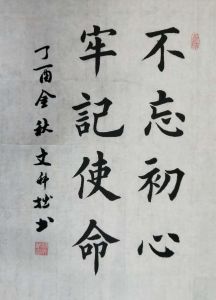 不忘初心
牢記使命
丁酉金秋文升拙书